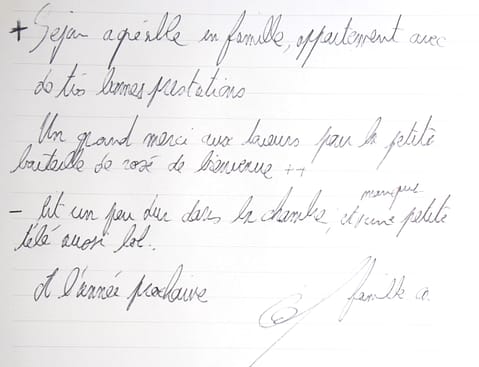 + Séjour agréable en famille, appartement avec
de très bonnes prestations
Un grand merci aux loueurs pour la petite
bouteille de rosé de bienvenue ++
- lit un peu dur dans la chambre, et manque une petite
télé aussi lol.
A l'année prochaine
famille a.